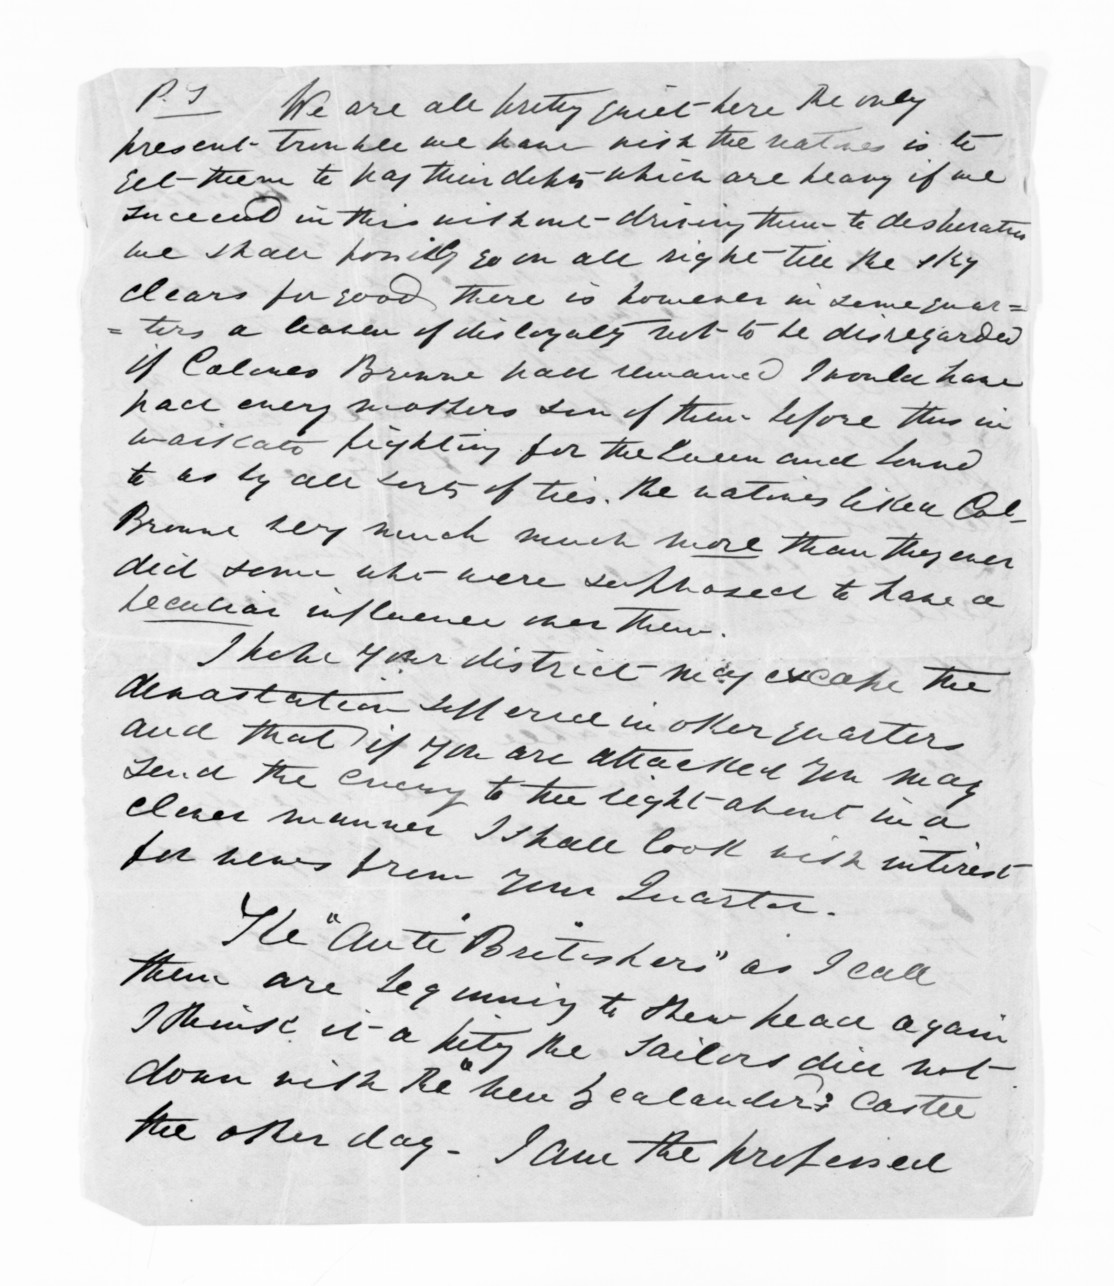 P.S We are all pretty quiet here the only
present trouble we have with the natives is to
get them to pay their debts which are heavy if we
succeed in this without driving them to desperation
we shall possibly go on all right till the sky
clears for good, there is however in some quar=
=ters a leaven of disloyalty not to be disregarded
if Colonel Browne had remained I would have
had every mothers son of them before this in
Waikato fighting for the Queen and bound
to us by all sorts of ties. The natives liked Col-
Browne very much much more than they ever
did some who were supposed to have a
peculiar influence over them.
I hope your district may escape the
devastation suffered in other quarters
and that if you are attacked you may
send the enemy to the right about in a
clever manner I shall look with interest
for news from your Quarter.
The "Anti" British​ers" as I call
them are beginning to shew head again
I think it a pity the sailors did not
down with the "New Zealanders" Castle
the other day - I am the professed